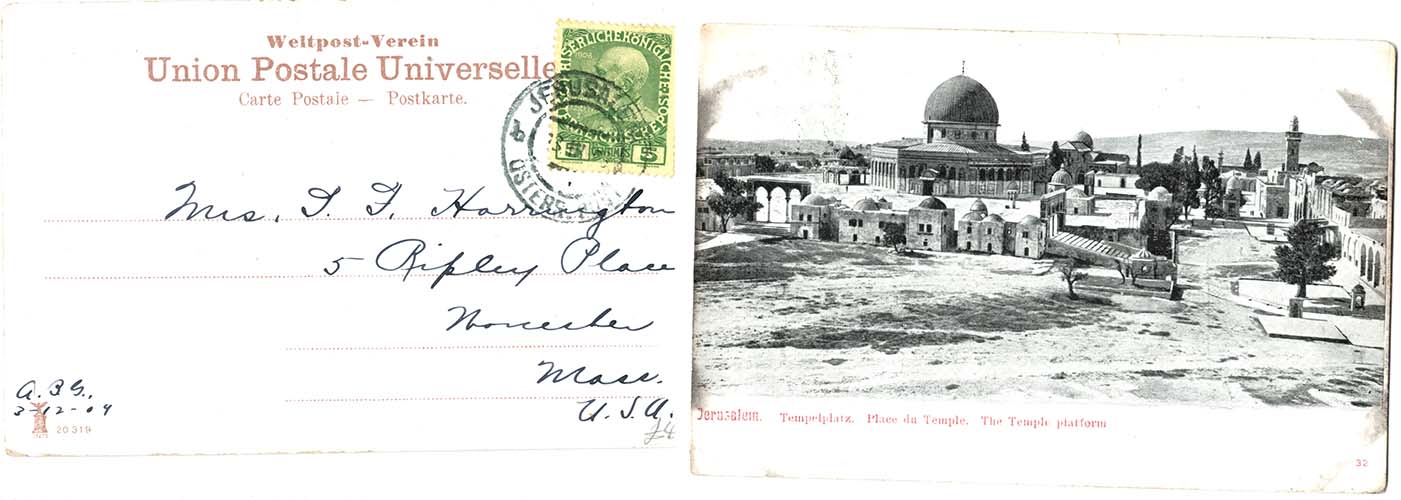 Weltpost-Verein
Union Postale Universelle
Carte Postale — Postkarte.
1908
JERUSALEM
5 5
Mrs. I. I. Harrington
5 Ripley Place
Worcester
Mass.
U.S.A.
A.B.G.,
3-12-09
20319
£4
Jerusalem. Tempelplatz. Place du Temple. The Temple platform
32